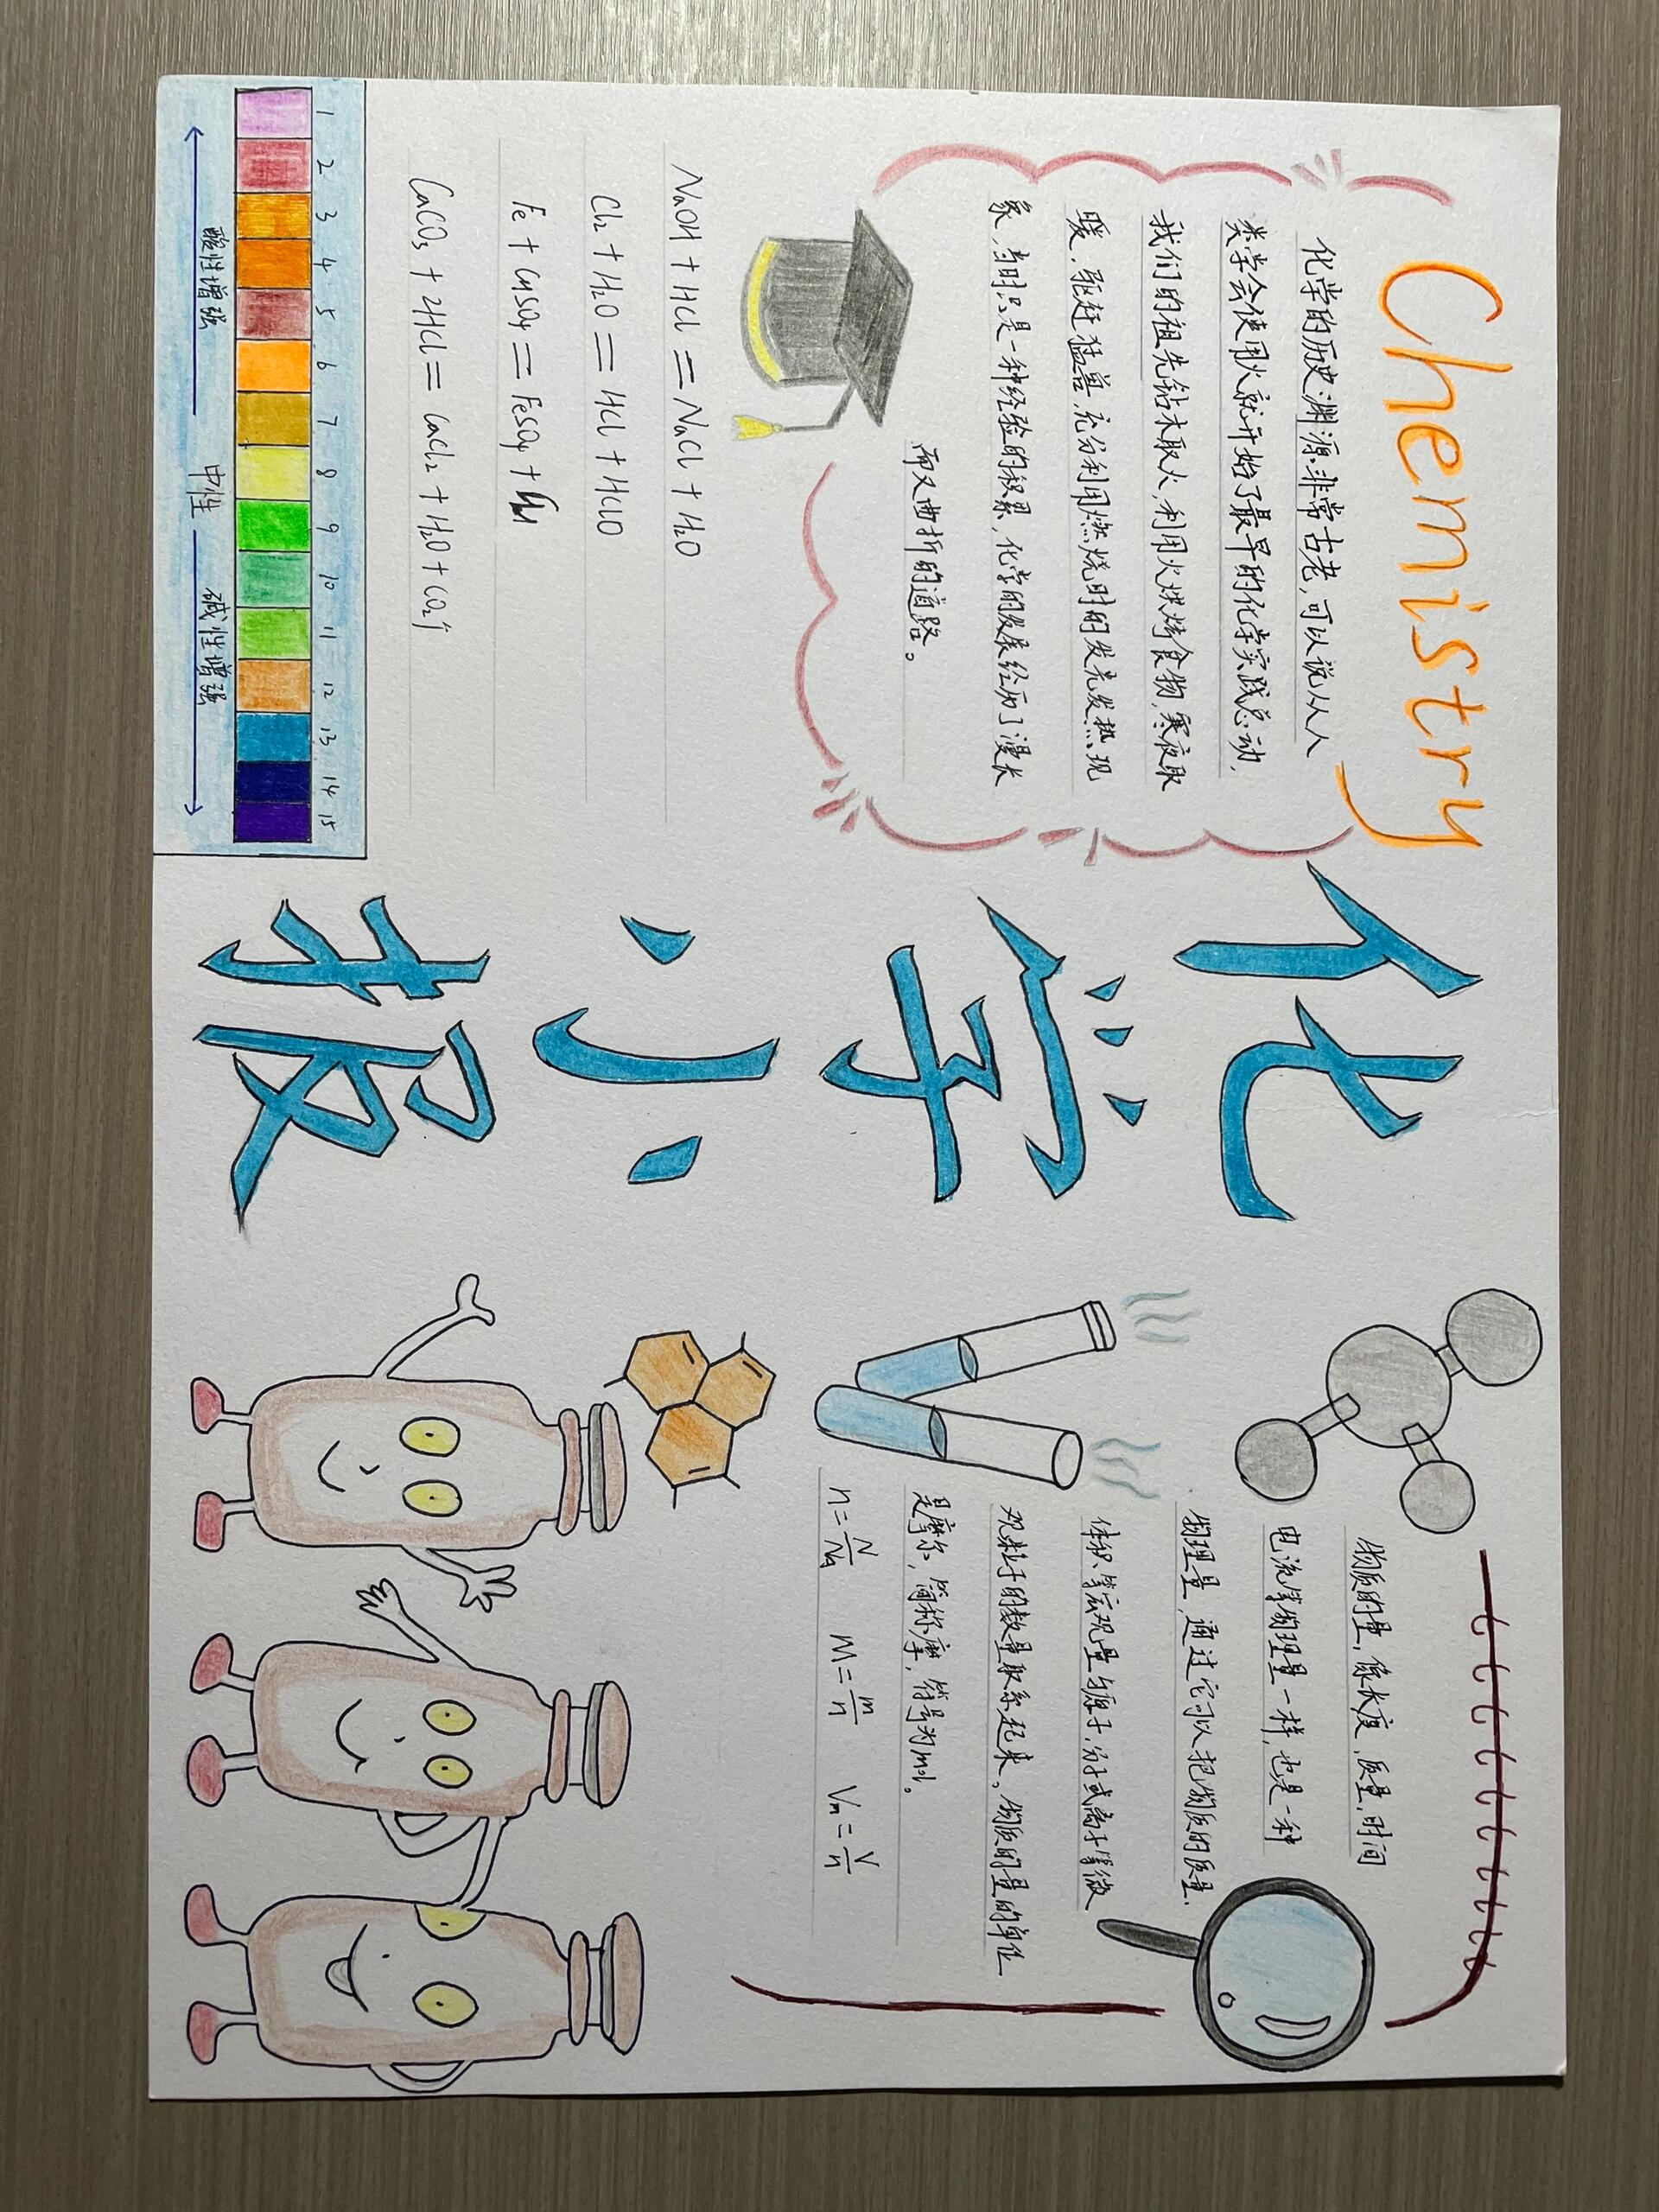 Chemistry
化学的历史渊源非常古老,可以说从人
类学会使用火就开始了最早的化学实践总动,
我们的祖先钻木取火,利用火烘烤食物,寒夜取
暖,驱赶猛兽,充分利用燃烧时的发光发热现
象,当时只是一种经验的积累,化学的发展经历了漫长
而又曲折的道路。
NaOH + HCl = NaCl + H₂O
Cl₂ + H₂O = HCl + HClO
Fe + CuSO₄ = FeSO₄ + Cu
CaCO₃ + 2HCl = CaCl₂ + H₂O + CO₂↑
1 2 3 4 5 6 7 8 9 10 11 12 13 14 15
酸性增强 中性 碱性增强
化学小报
物质的量,像长度,质量,时间
电流等物理量一样,也是一种
物理量,通过它可以把物质的质量、
体积等宏观量与原子,分子或离子等微
观粒子的数量联系起来。物质的量的单位
是摩尔,简称摩,符号为mol。
n = N/Na M = m/n Vm = V/n